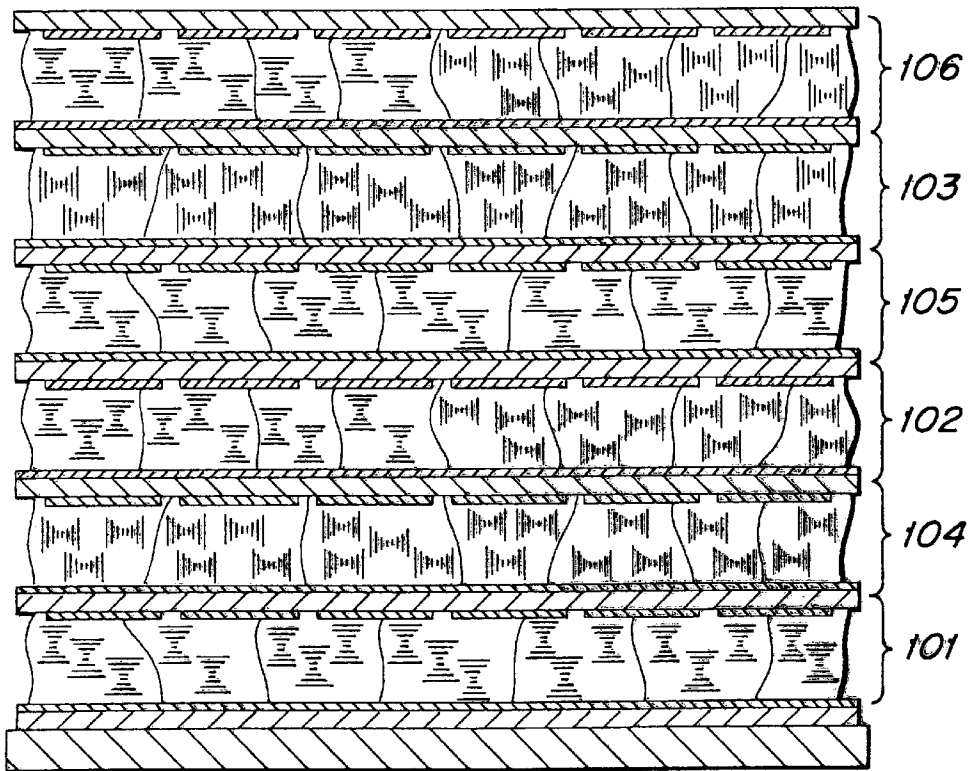 106
103
105
102
104
101